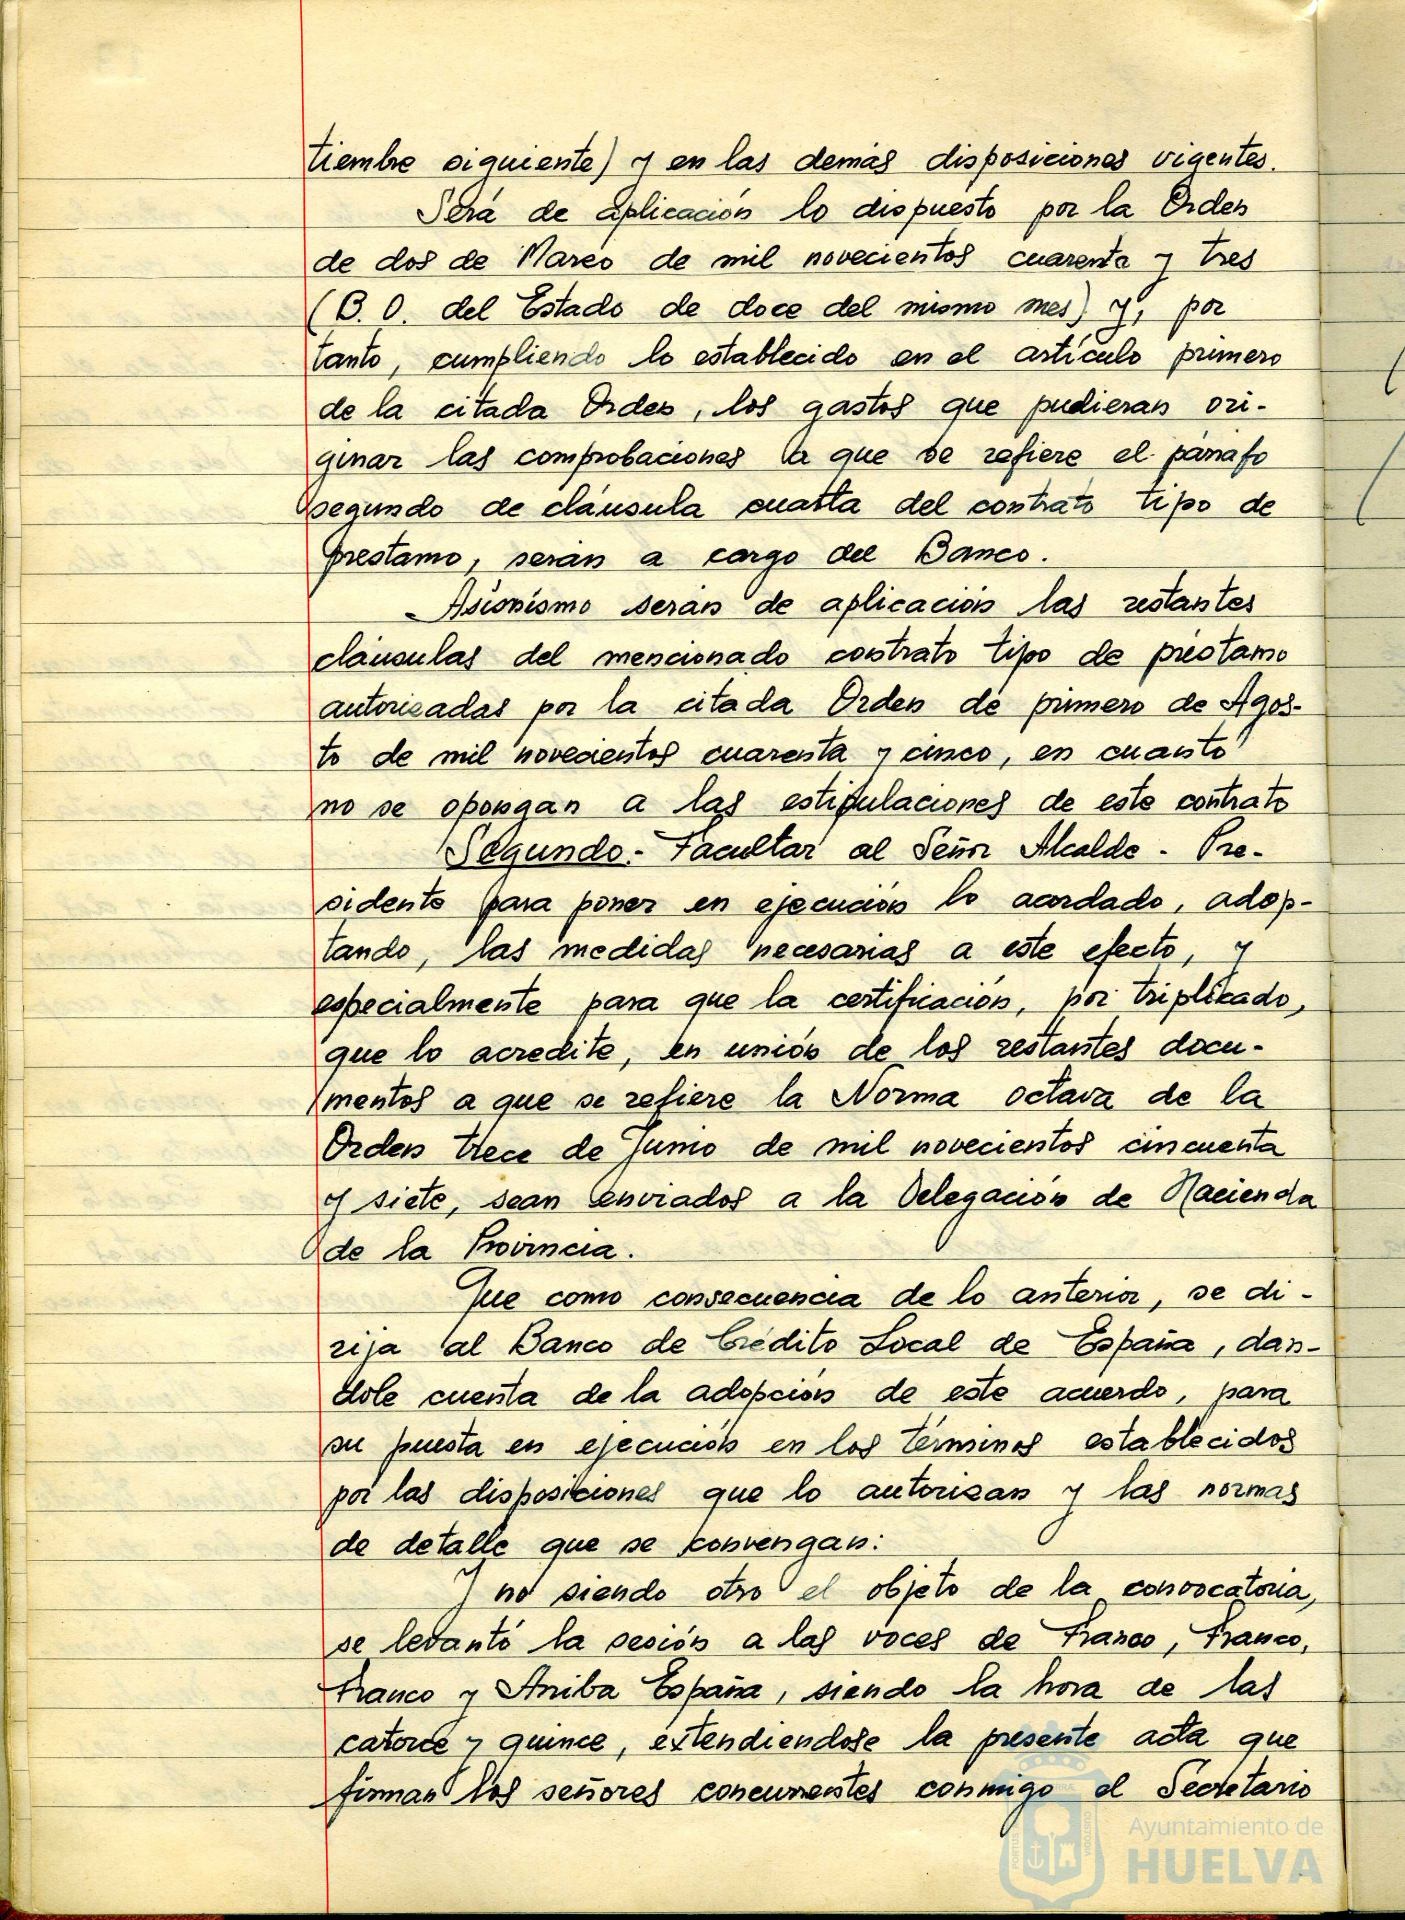 tiembre siguiente) y en las demás disposiciones vigentes.
Será de aplicación lo dispuesto por la Orden
de dos de Marzo de mil novecientos cuarenta y tres
(B. O. del Estado de doce del mismo mes) y, por
tanto, cumpliendo lo establecido en el artículo primero
de la citada Orden, los gastos que pudieran ori-
ginar las comprobaciones a que se refiere el párrafo
segundo de cláusula cuarta del contrato tipo de
préstamo, serán a cargo del Banco.
Asimismo serán de aplicación las restantes
cláusulas del mencionado contrato tipo de préstamo
autorizadas por la citada Orden de primero de Agos-
to de mil novecientos cuarenta y cinco, en cuanto
no se opongan a las estipulaciones de este contrato
Segundo.- Facultar al Señor Alcalde - Pre-
sidente para poner en ejecución lo acordado, adop-
tando, las medidas necesarias a este efecto, y
especialmente para que la certificación, por triplicado,
que lo acredite, en unión de los restantes docu-
mentos a que se refiere la Norma octava de la
Orden trece de Junio de mil novecientos cincuenta
y siete, sean enviados a la Delegación de Hacienda
de la Provincia.
Que como consecuencia de lo anterior, se di-
rija al Banco de Crédito Local de España, dan-
dole cuenta de la adopción de este acuerdo, para
su puesta en ejecución en los términos establecidos
por las disposiciones que lo autorizan y las normas
de detalle que se convengan:
Y no siendo otro el objeto de la convocatoria,
se levantó la sesión a las voces de Franco, Franco,
Franco y Arriba España, siendo la hora de las
catorce y quince, extendiendose la presente acta que
firman los señores concurrentes conmigo el Secretario
Ayuntamiento de
HUELVA